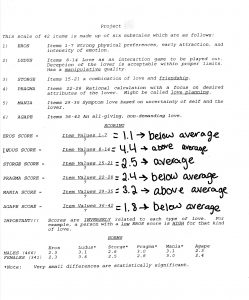 Project
This scale of 42 items is made up of six subscales which are as follows:
1) EROS Items 1-7 Strong physical preferences, early attraction, and intensity of emotion.
2) LUDUS Items 8-14 Love as an interaction game to be played out.
Deception of the lover is acceptable within proper limits.
Has a manipulative quality.
3) STORGE Items 15-21 A combination of love and friendship.
4) PRAGMA Items 22-28 Rational calculation with a focus on desired
attributes of the lover. Might be called love planning.
5) MANIA Items 29-35 Symptom love based on uncertainty of self and the
lover.
6) AGAPE Items 36-42 An all-giving, non-demanding love.
SCORING
EROS SCORE - Item Values 1-7 = 1.1 → below average
LUDUS SCORE - Item Values 8-14 = 4.4 → above average
STORGE SCORE - Item Values 15-21 = 2.5 → average
PRAGMA SCORE - Item Values 22-28 = 2.4 → below average
MANIA SCORE - Item Values 29-35 = 3.2 → above average
AGAPE SCORE - Item Values 36-42 = 1.8 → below average
IMPORTANT!!! Scores are INVERSELY related to each type of love. For
example, a person with a low EROS score is HIGH for that kind
of love.
NORMS
Eros Ludus* Storge* Pragma* Mania* Agape
MALES (466)
FEMALES
*Note: Very small differences are statistically significant.